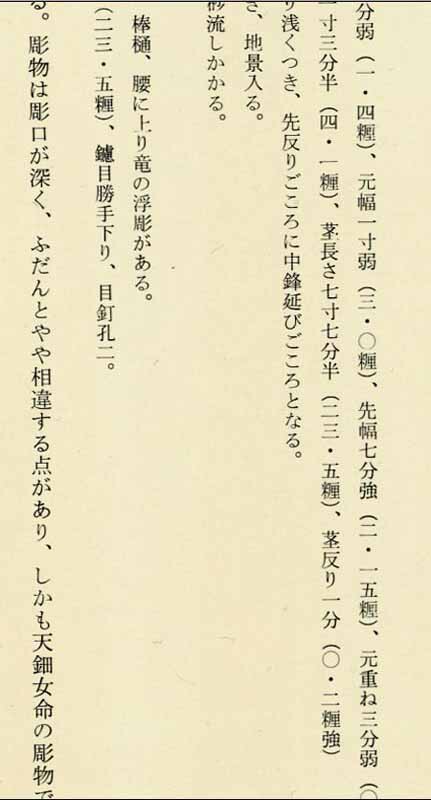 分弱（一・四糎）、元幅一寸弱（三・〇糎）、先幅七分強（二・一五糎）、元重ね三分弱（〇
一寸三分半（四・一糎）、茎長さ七寸七分半（二三・五糎）、茎反り一分（〇・二糎強）
り浅くつき、先反りごころに中鋒延びごころとなる。
き、地景入る。
砂流しかかる。
棒樋、腰に上り竜の浮彫がある。
（二三・五糎）、鑢目勝手下り、目釘孔二。
る。彫物は彫口が深く、ふだんとやや相違する点があり、しかも天鈿女命の彫物で